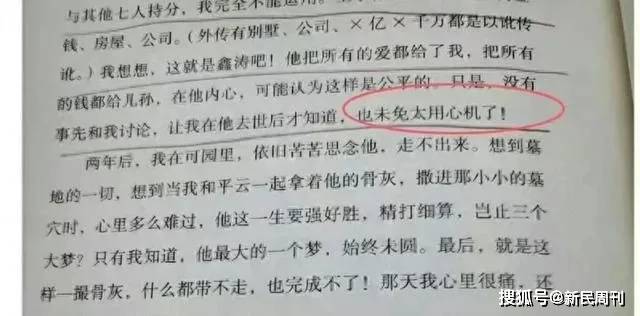 与其他七人持分，我完全不能运用。
钱、房屋、公司。（外传有别墅、公司、×亿×千万都是以讹传
讹。）我想想，这就是鑫涛吧！他把所有的爱都给了我，把所有
的钱都给儿孙，在他内心，可能认为这样是公平的。只是，没有
事先和我讨论，让我在他去世后才知道，也未免太用心机了！
两年后，我在可园里，依旧苦苦思念他，走不出来。想到墓
地的一切，想到当我和平云一起拿着他的骨灰，撒进那小小的墓
穴时，心里多么难过，他这一生要强好胜，精打细算，岂止三个
大梦？只有我知道，他最大的一个梦，始终未圆。最后，就是这
样一撮骨灰，什么都带不走，也完成不了！那天我心里很痛，还
搜狐号@新民周刊